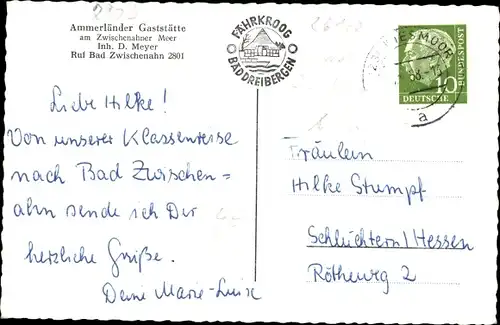 Ammerländer Gaststätte
am Zwischenahner Meer
Inh. D. Meyer
Ruf Bad Zwischenahn 2801
FÄHRKROOG
BAD DREIBERGEN
DEUTSCHE
BUNDESPOST
10
a
Liebe Hilke!
Von unserer Klassenreise
nach Bad Zwischen=
ahn sende ich Dir
herzliche Grüße.
Deine Marie-Luise
Fräulein
Hilke Stumpf
Schlüchtern/Hessen
Röthweg 2